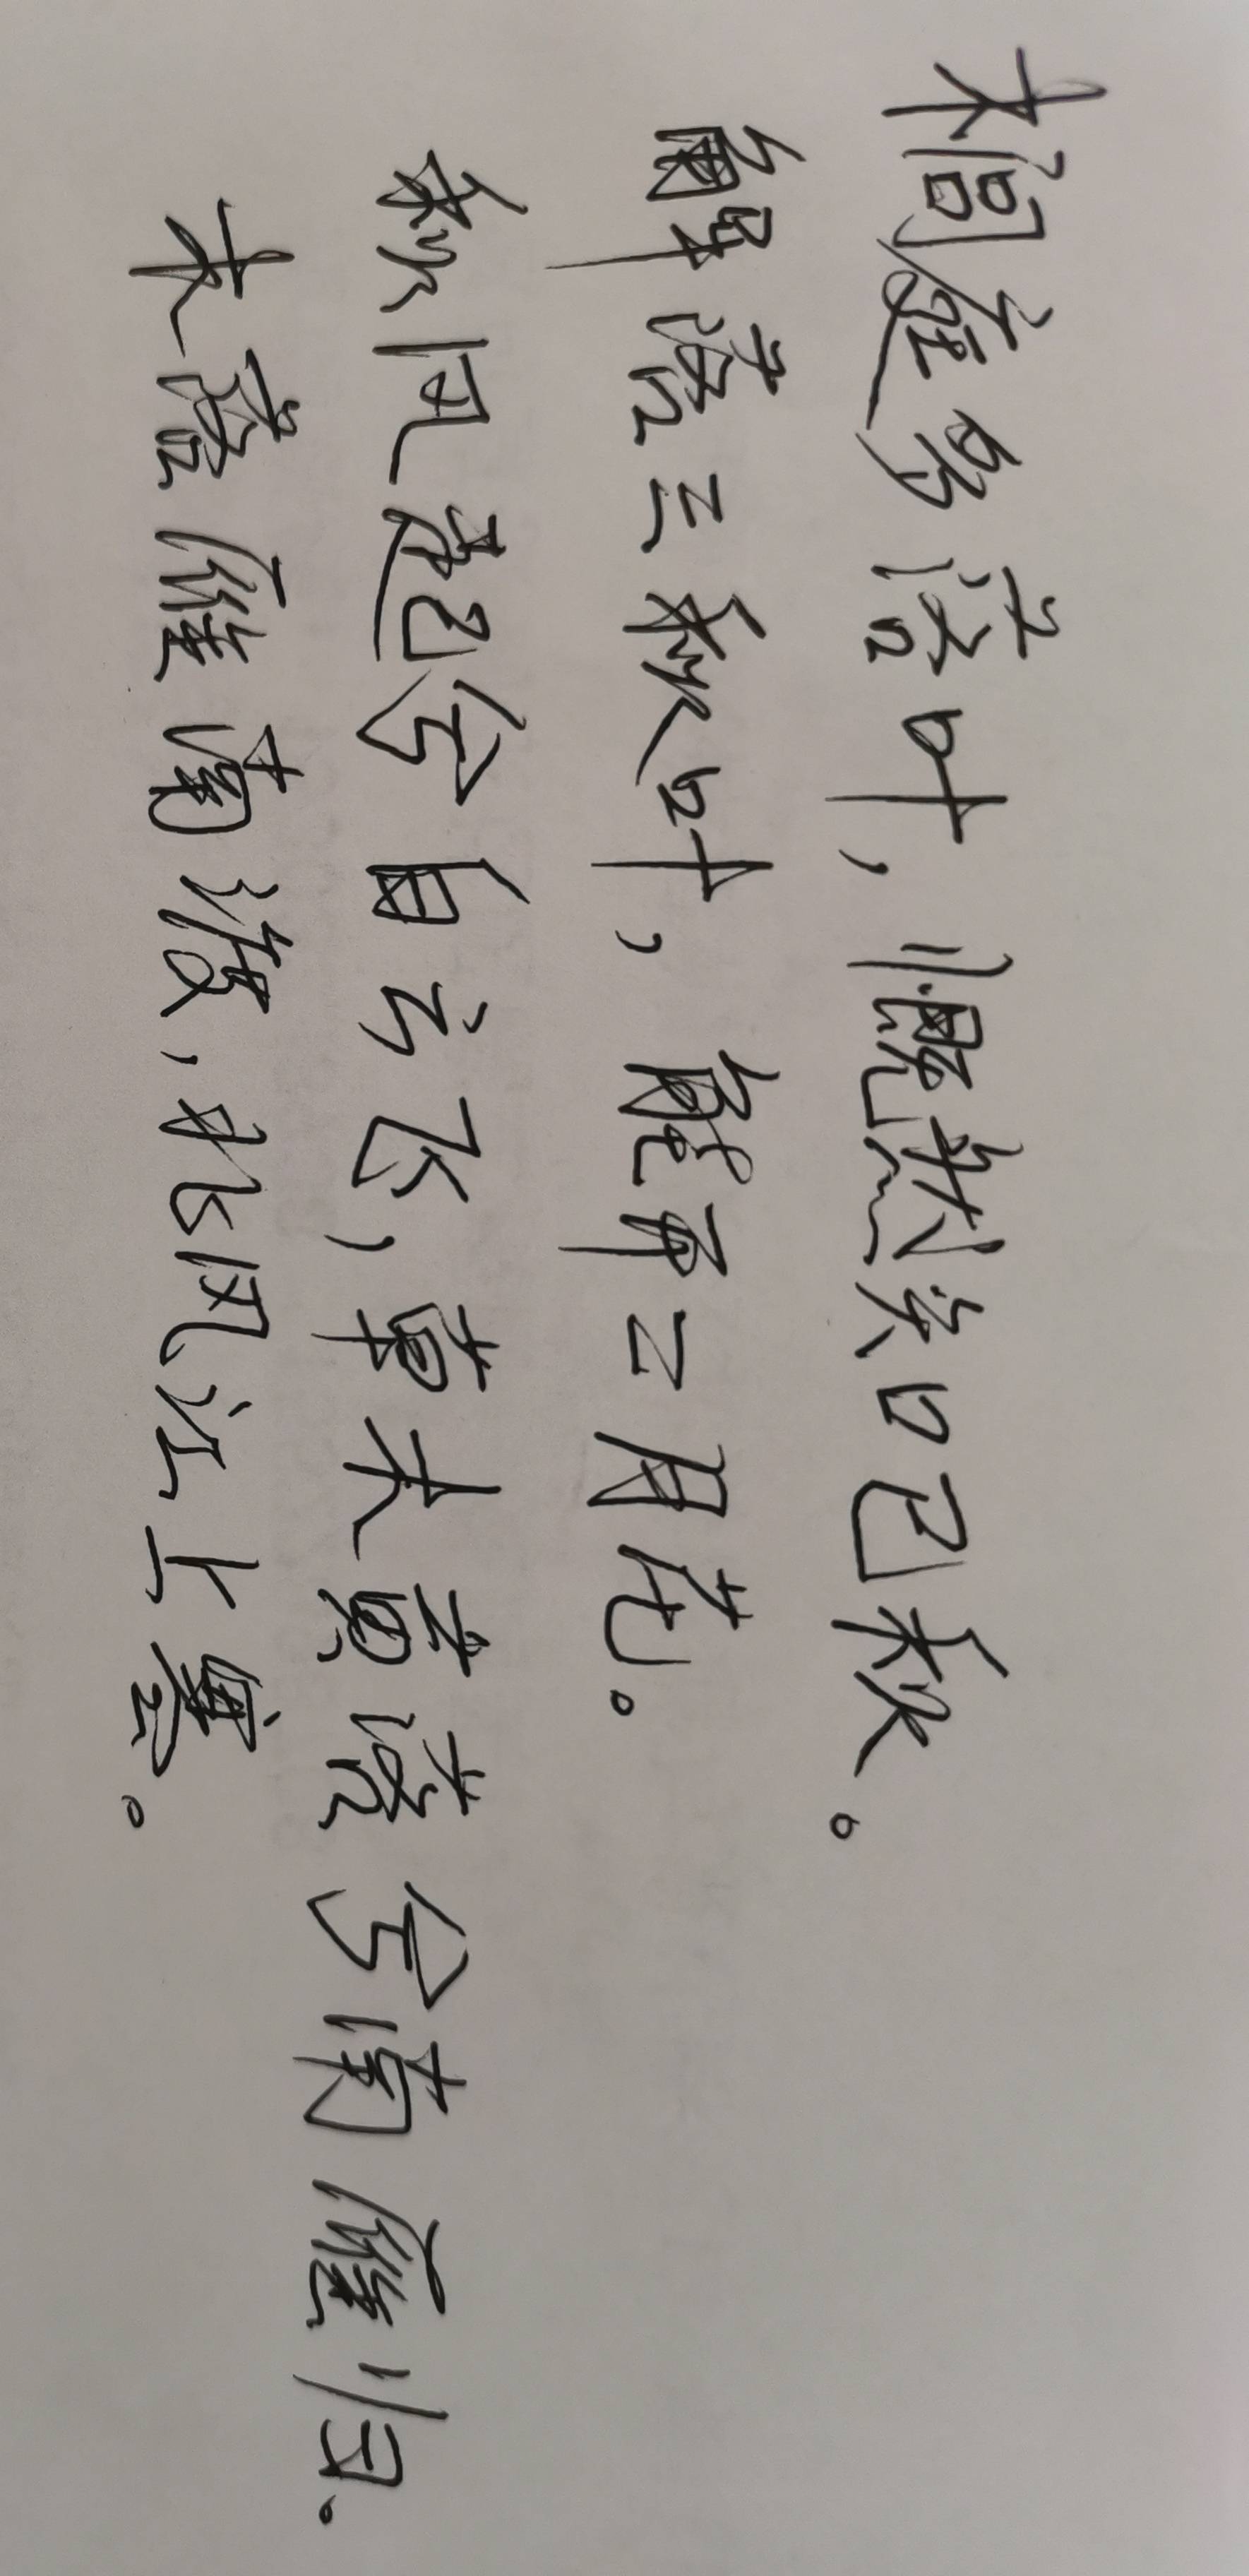 榈庭多落叶，慨然知已秋。
解落三秋叶，能开二月花。
秋风起兮白云飞，草木黄落兮南雁归。
木落雁南渡，北风江上寒。